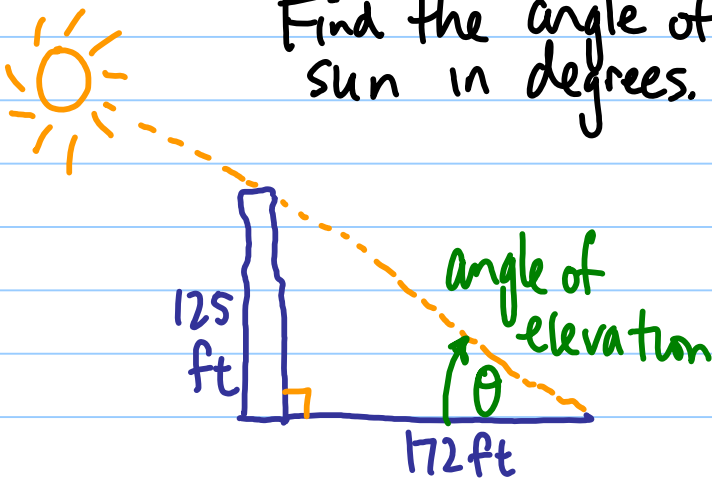 Find the angle of
sun in degrees.
angle of
elevation
125
ft
θ
172ft